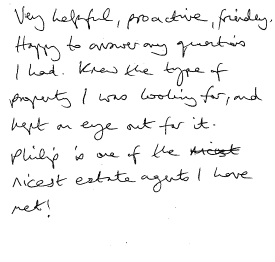 Very helpful, proactive, friendly.
Happy to answer any questions
I had. Knew the type of
property I was looking for, and
kept an eye out for it.
Philip is one of the nicest
nicest estate agents I have
met!